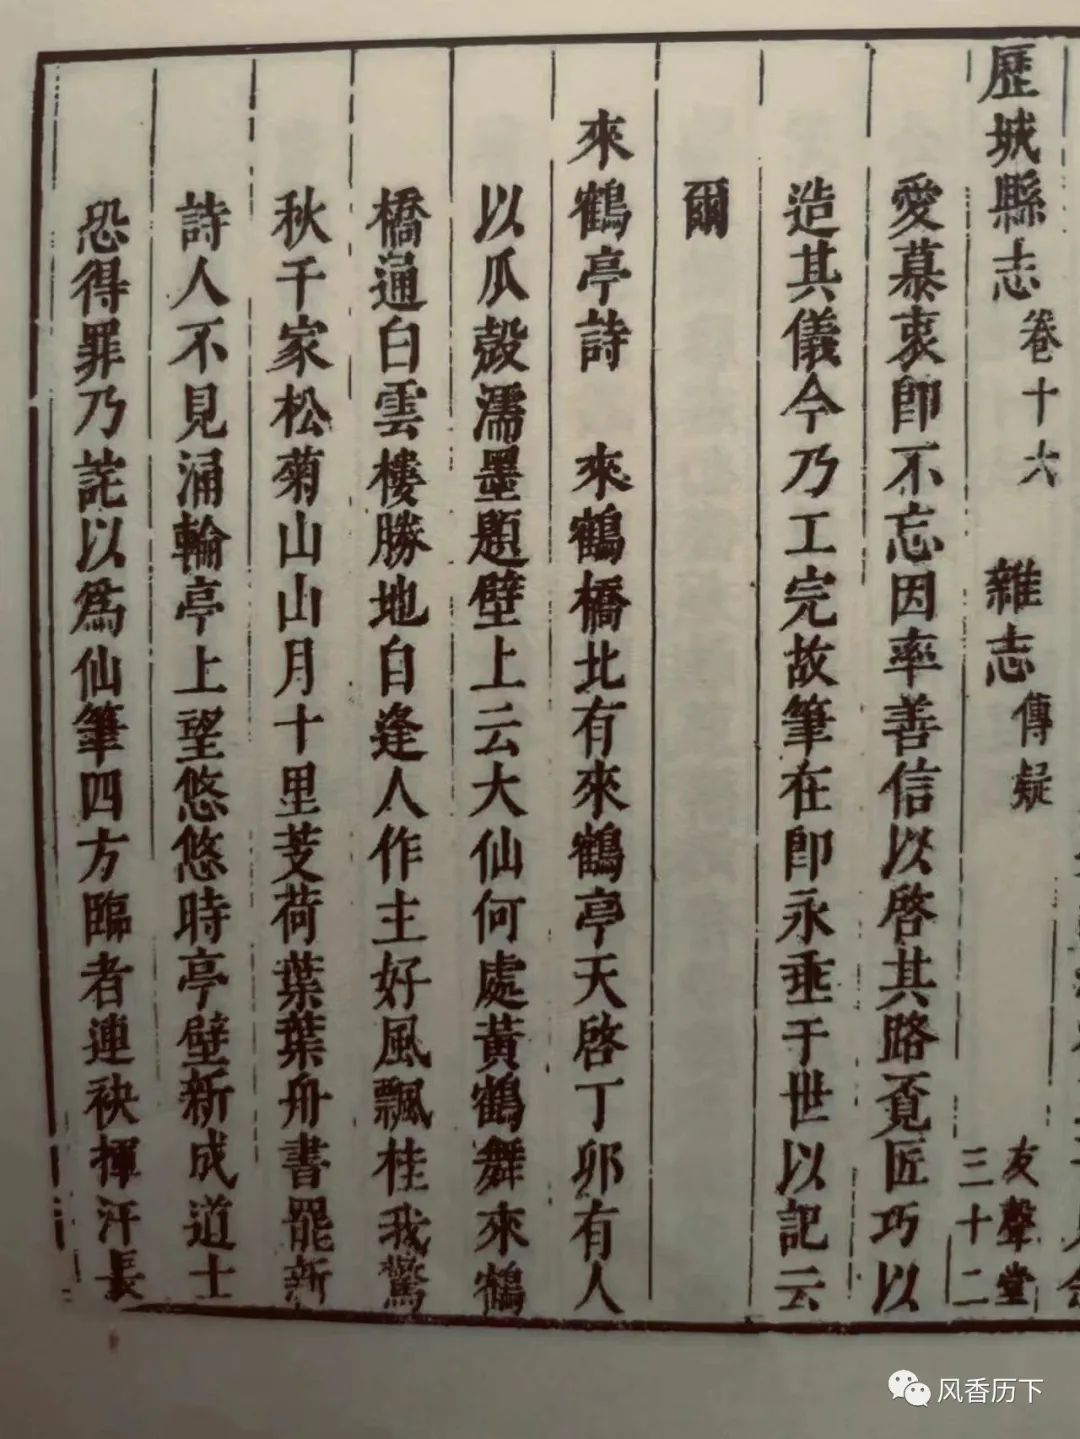 歷城縣志 卷十六 雜志 傳疑
友聲堂
三十二
愛慕衷卽不忘因率善信以啓其路覔匠巧以
造其儀今乃工完故筆在卽永垂于世以記云
爾
來鶴亭詩 來鶴橋北有來鶴亭天啓丁卯有人
以瓜殼濡墨題壁上云大仙何處黃鶴舞來鶴
橋通白雲樓勝地自逢人作主好風飄桂我驚
秋千家松菊山山月十里芰荷葉葉舟書罷新
詩人不見涌輪亭上望悠悠時亭壁新成道士
恐得罪乃詫以爲仙筆四方臨者連袂揮汗長
风香历下